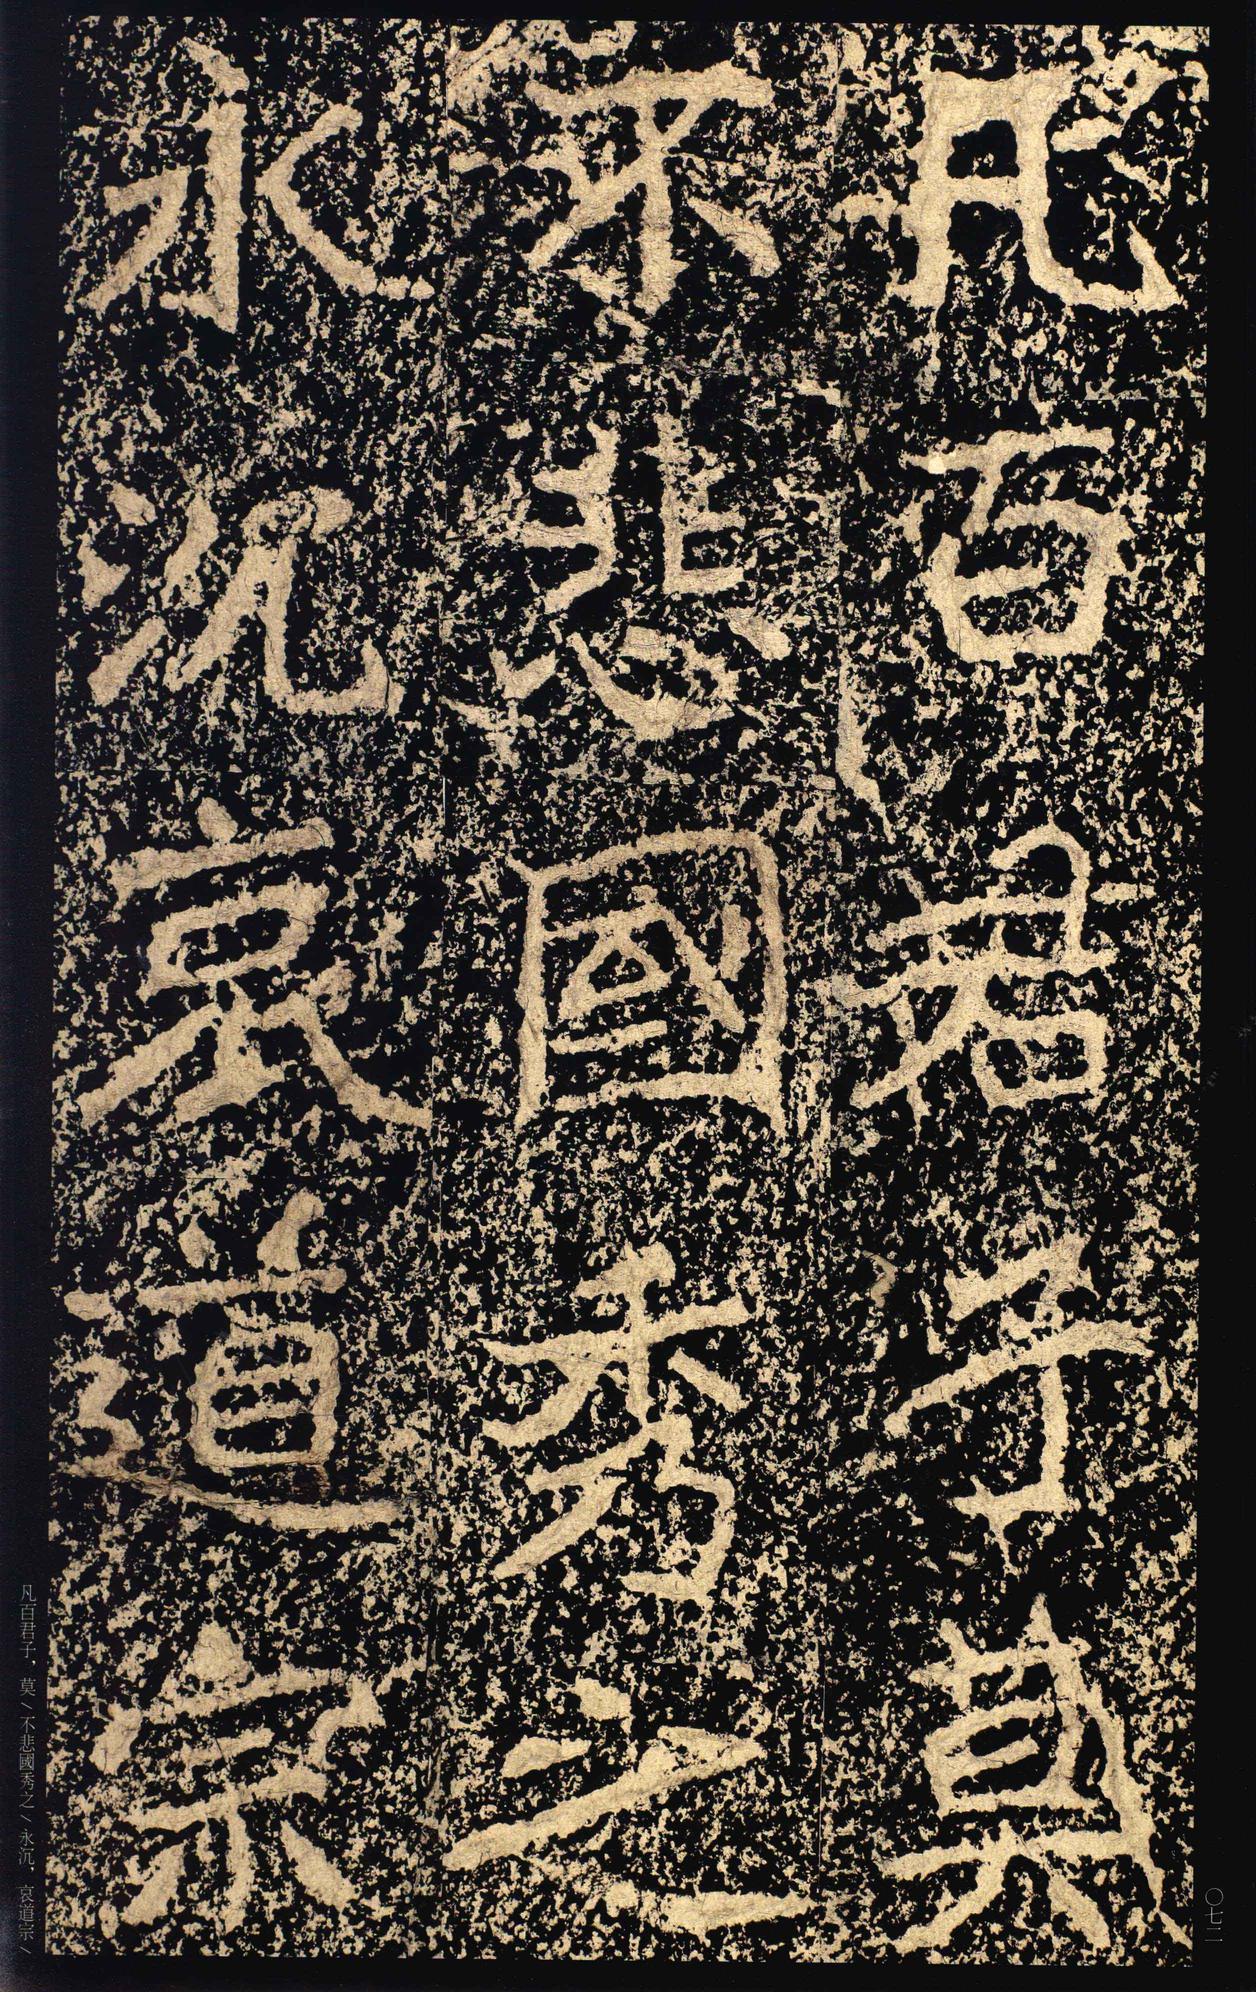 凡百君子莫
不悲國秀之
永沉哀道宗
凡百君子，莫／不悲國秀之／永沉，哀道宗／
〇七二